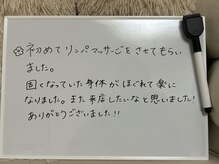 初めてリンパマッサージをさせてもらい
ました。
固くなっていた身体がほぐれて楽に
なりました。また来店したいなと思いました!
ありがとうございました!!